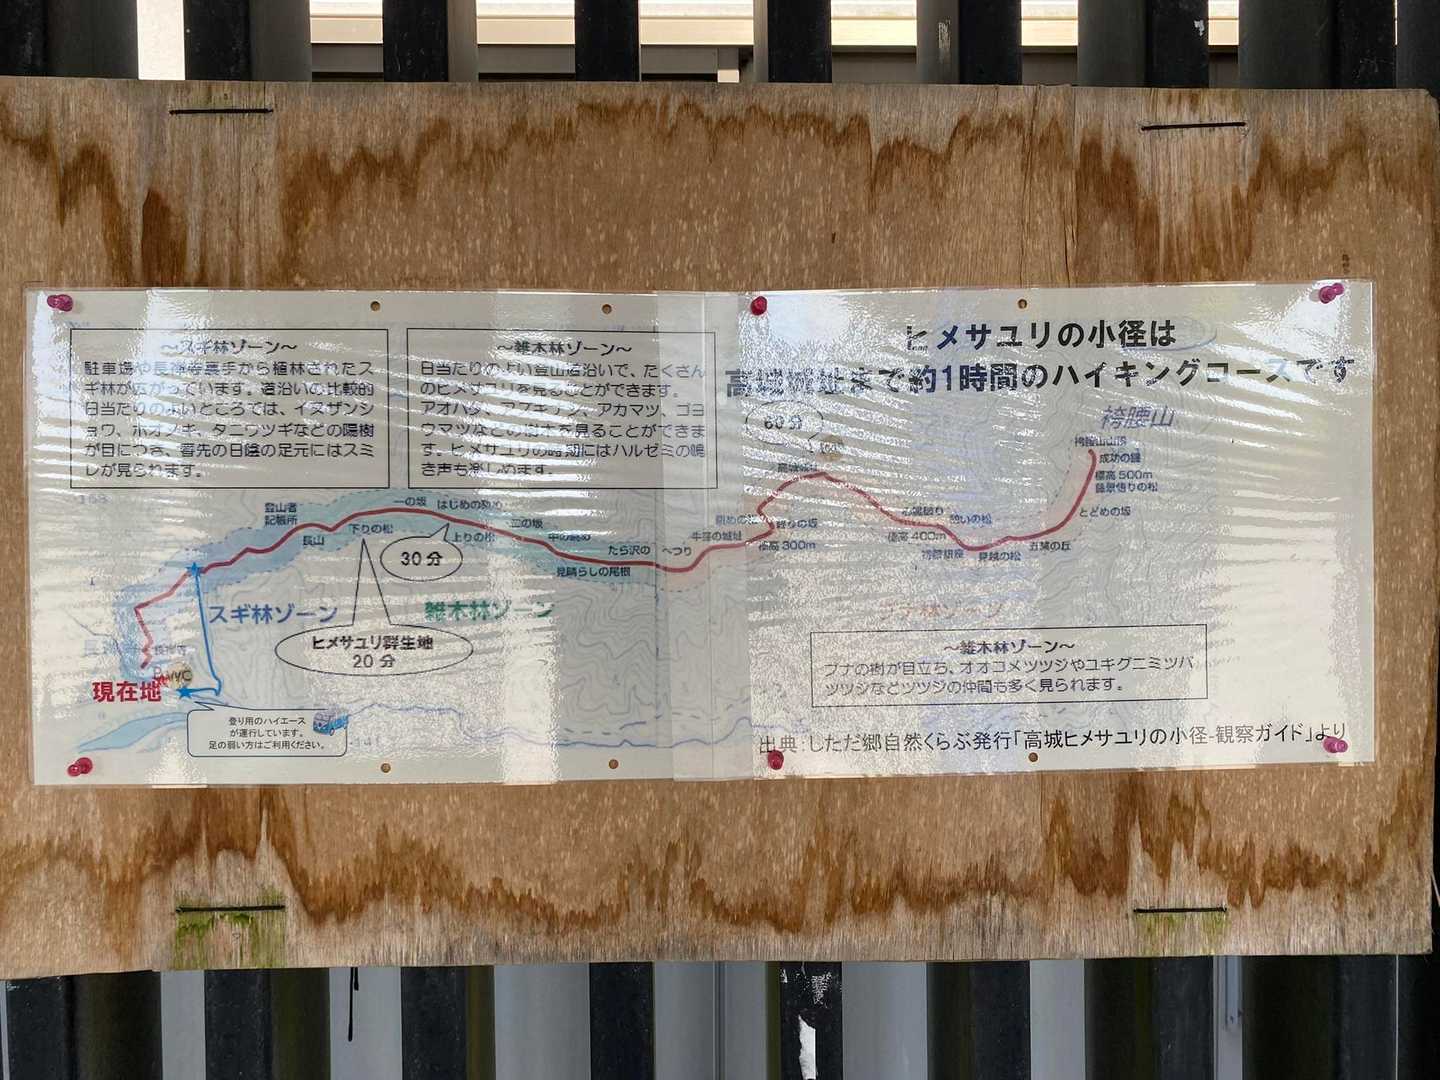 ～スギ林ゾーン～
駐車場や長禅寺裏手から植林されたス
ギ林が広がっています。道沿いの比較的
日当たりのよいところでは、イヌザンシ
ョウ、ホオノキ、タニウツギなどの陽樹
が目につき、春先の日陰の足元にはスミ
レが見られます。
～雑木林ゾーン～
日当たりのよい登山道沿いで、たくさん
のヒメサユリを見ることができます。
アオハダ、アズキナシ、アカマツ、ゴヨ
ウマツなどの樹木を見ることができま
す。ヒメサユリの時期にはハルゼミの鳴
き声も楽しめます。
ヒメサユリの小径は
高城城址まで約1時間のハイキングコースです
60分
袴腰山
袴腰山山頂
成功の鐘
標高500m
藤景悟りの松
とどめの坂
五葉の丘
見越の松
憩いの松
心臓破り
標高400m
高城城址
登りの坂
標高300m
牛窪の城址
へつり
たら沢の
見晴らしの尾根
中の眺め
二の坂
はじめの眺め
上りの松
一の坂
下りの松
長山
登山者
記帳所
30分
スギ林ゾーン
雑木林ゾーン
ブナ林ゾーン
ヒメサユリ群生地
20分
長禅寺
現在地
登り用のハイエース
が運行しています。
足の弱い方はご利用ください。
～雑木林ゾーン～
ブナの樹が目立ち、オオコメツツジやユキグニミツバ
ツツジなどツツジの仲間も多く見られます。
出典：しただ郷自然くらぶ発行「高城ヒメサユリの小径-観察ガイド」より